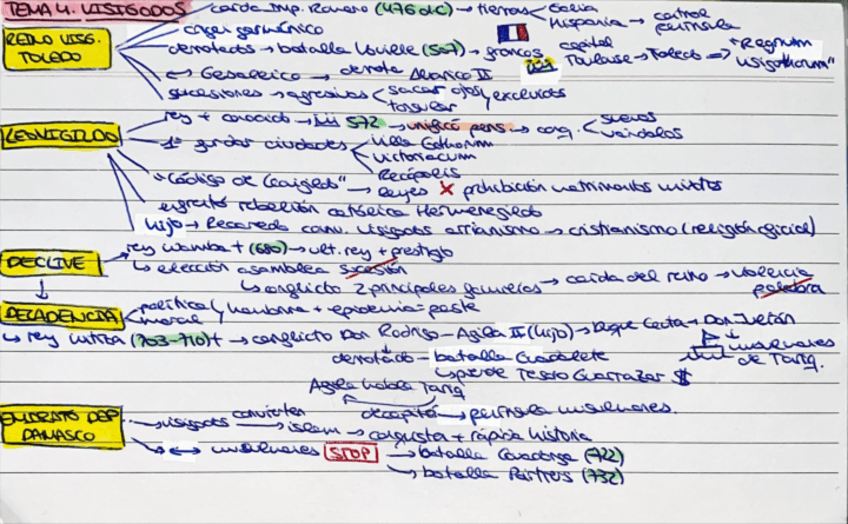 TEMA 4. VISIGODOS
caída Imp. Romano (476 d.C) → tierras Galia
Hispania → control península
REINO VISG. TOLEDO
origen germánico
derrotados → batalla Vouillé (507) → francos capital Toulouse → Toledo ⇒ "Regnum Visigothorum"
↔ Gesaleico → derrota Alarico II
sucesiones → agresivas sacar ojos y excluidos
tonsurar
LEOVIGILDO
rey + conocido → 572 → unificó pens → conq. suevos
vándalos
1º fundar ciudades Villa Gothorum
Victoriacum
Recópolis
"Código de Leovigildo" → leyes X prohibición matrimonios mixtos
rebelión católica Hermenegildo
hijo → Recaredo conv. visigodos arrianismo → cristianismo (religión oficial)
DECLIVE
rey Wamba + (680) → ult. rey + prestigio
↳ elección asamblea sucesión
↳ conflicto 2 principales familias → caída del reino → violencia
palabra
DECADENCIA
política y hambruna + epidemia peste
moral
↳ rey Witiza (703-710)+ → conflicto Don Rodrigo - Agila II (hijo) → Duque Ceuta → Don Julián
derrotado - batalla Guadalete
musulmanes de Tariq.
↳ pierde Tesoro Guarrazar $
Agila Tariq
decapita → península musulmanes.
EMIRATO DEP DAMASCO
→ visigodos convierten → islam → conquista + rápida historia
↔ musulmanes STOP → batalla Covadonga (722)
→ batalla Poitiers (732)